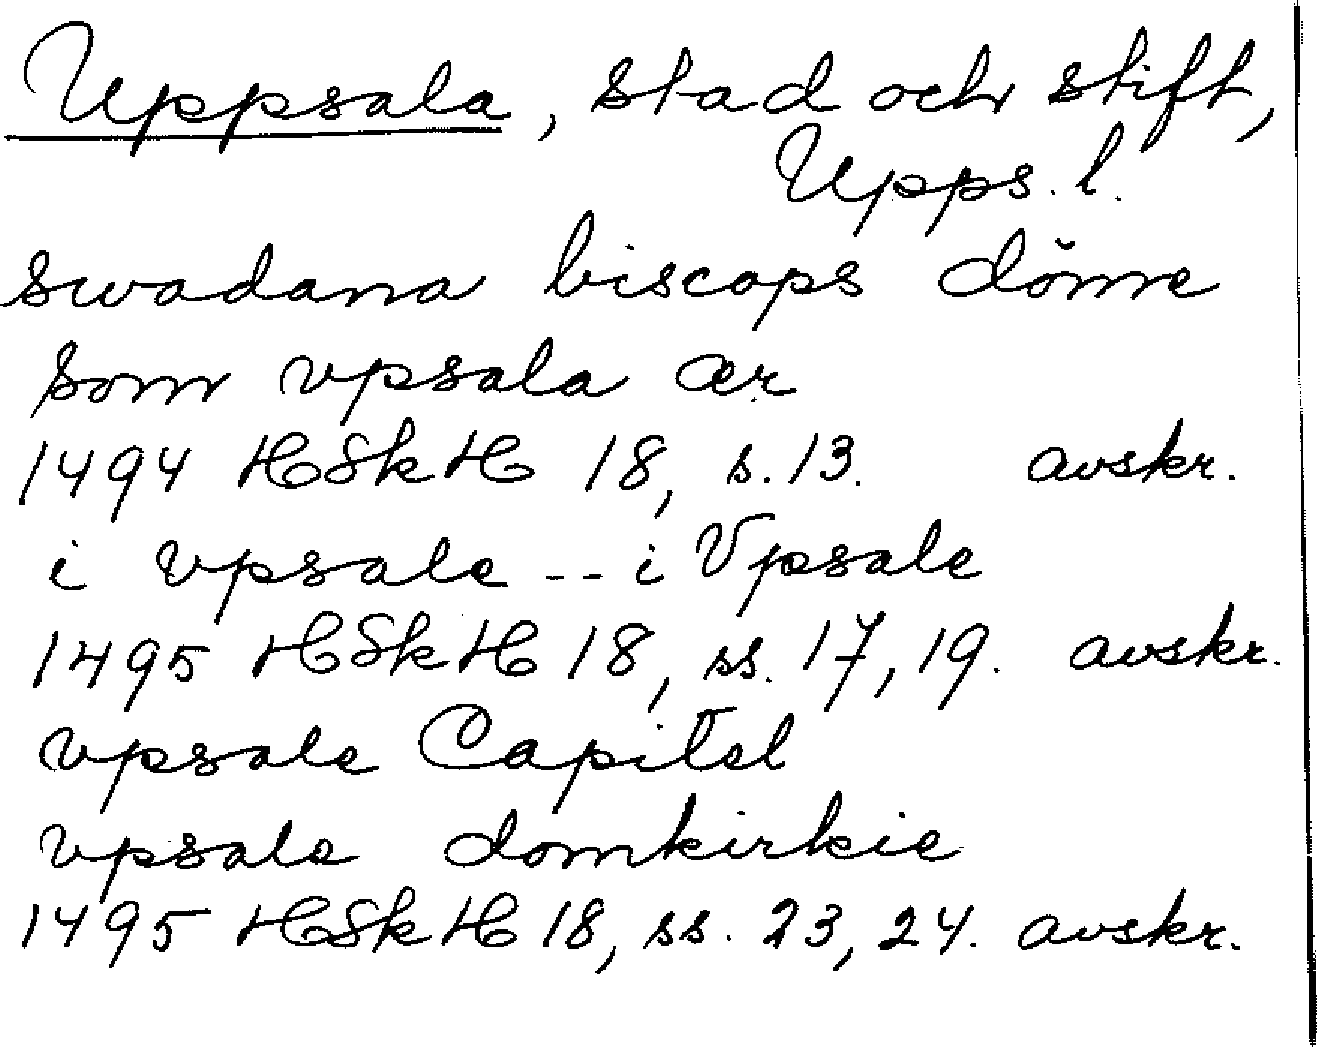 Uppsala, stad och stift,
Upps. l.
swadana biscops döme
som vpsala ær
1494 HSkH 18, s. 13. avskr.
i vpsale -- i Vpsale
1495 HSkH 18, ss. 17, 19. avskr.
vpsale Capitel
vpsale domkirkie
1495 HSkH 18, ss. 23, 24. avskr.